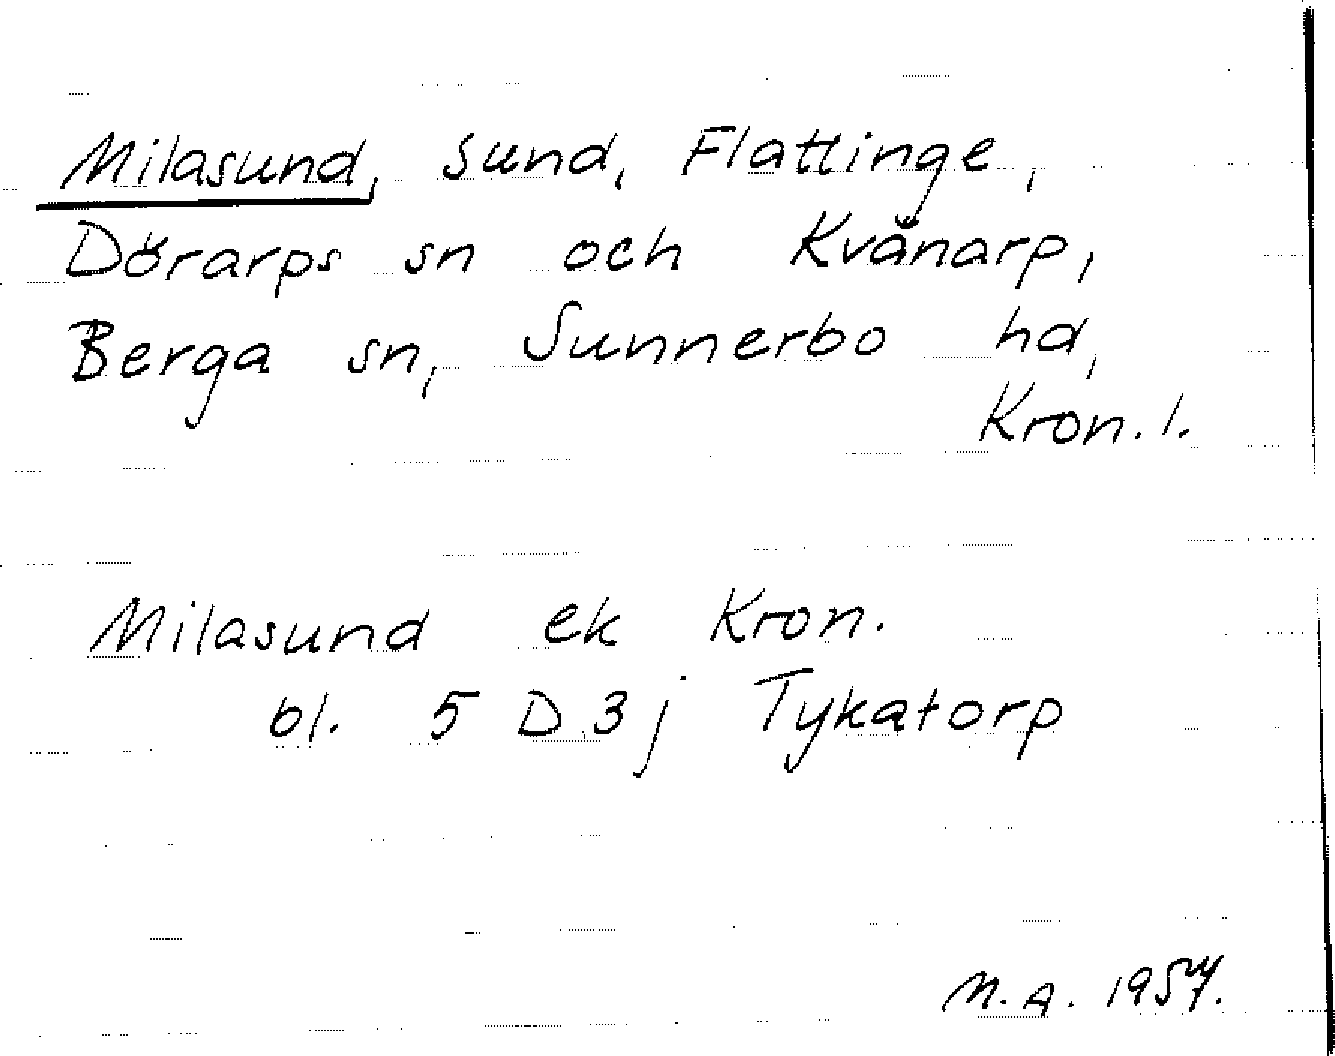 Milasund, sund, Flattinge,
Dörarps sn och Kvänarp,
Berga sn, Sunnerbo hd,
Kron. l.
Milasund ek Kron.
bl. 5 D 3 j Tykatorp
M.A. 1957.